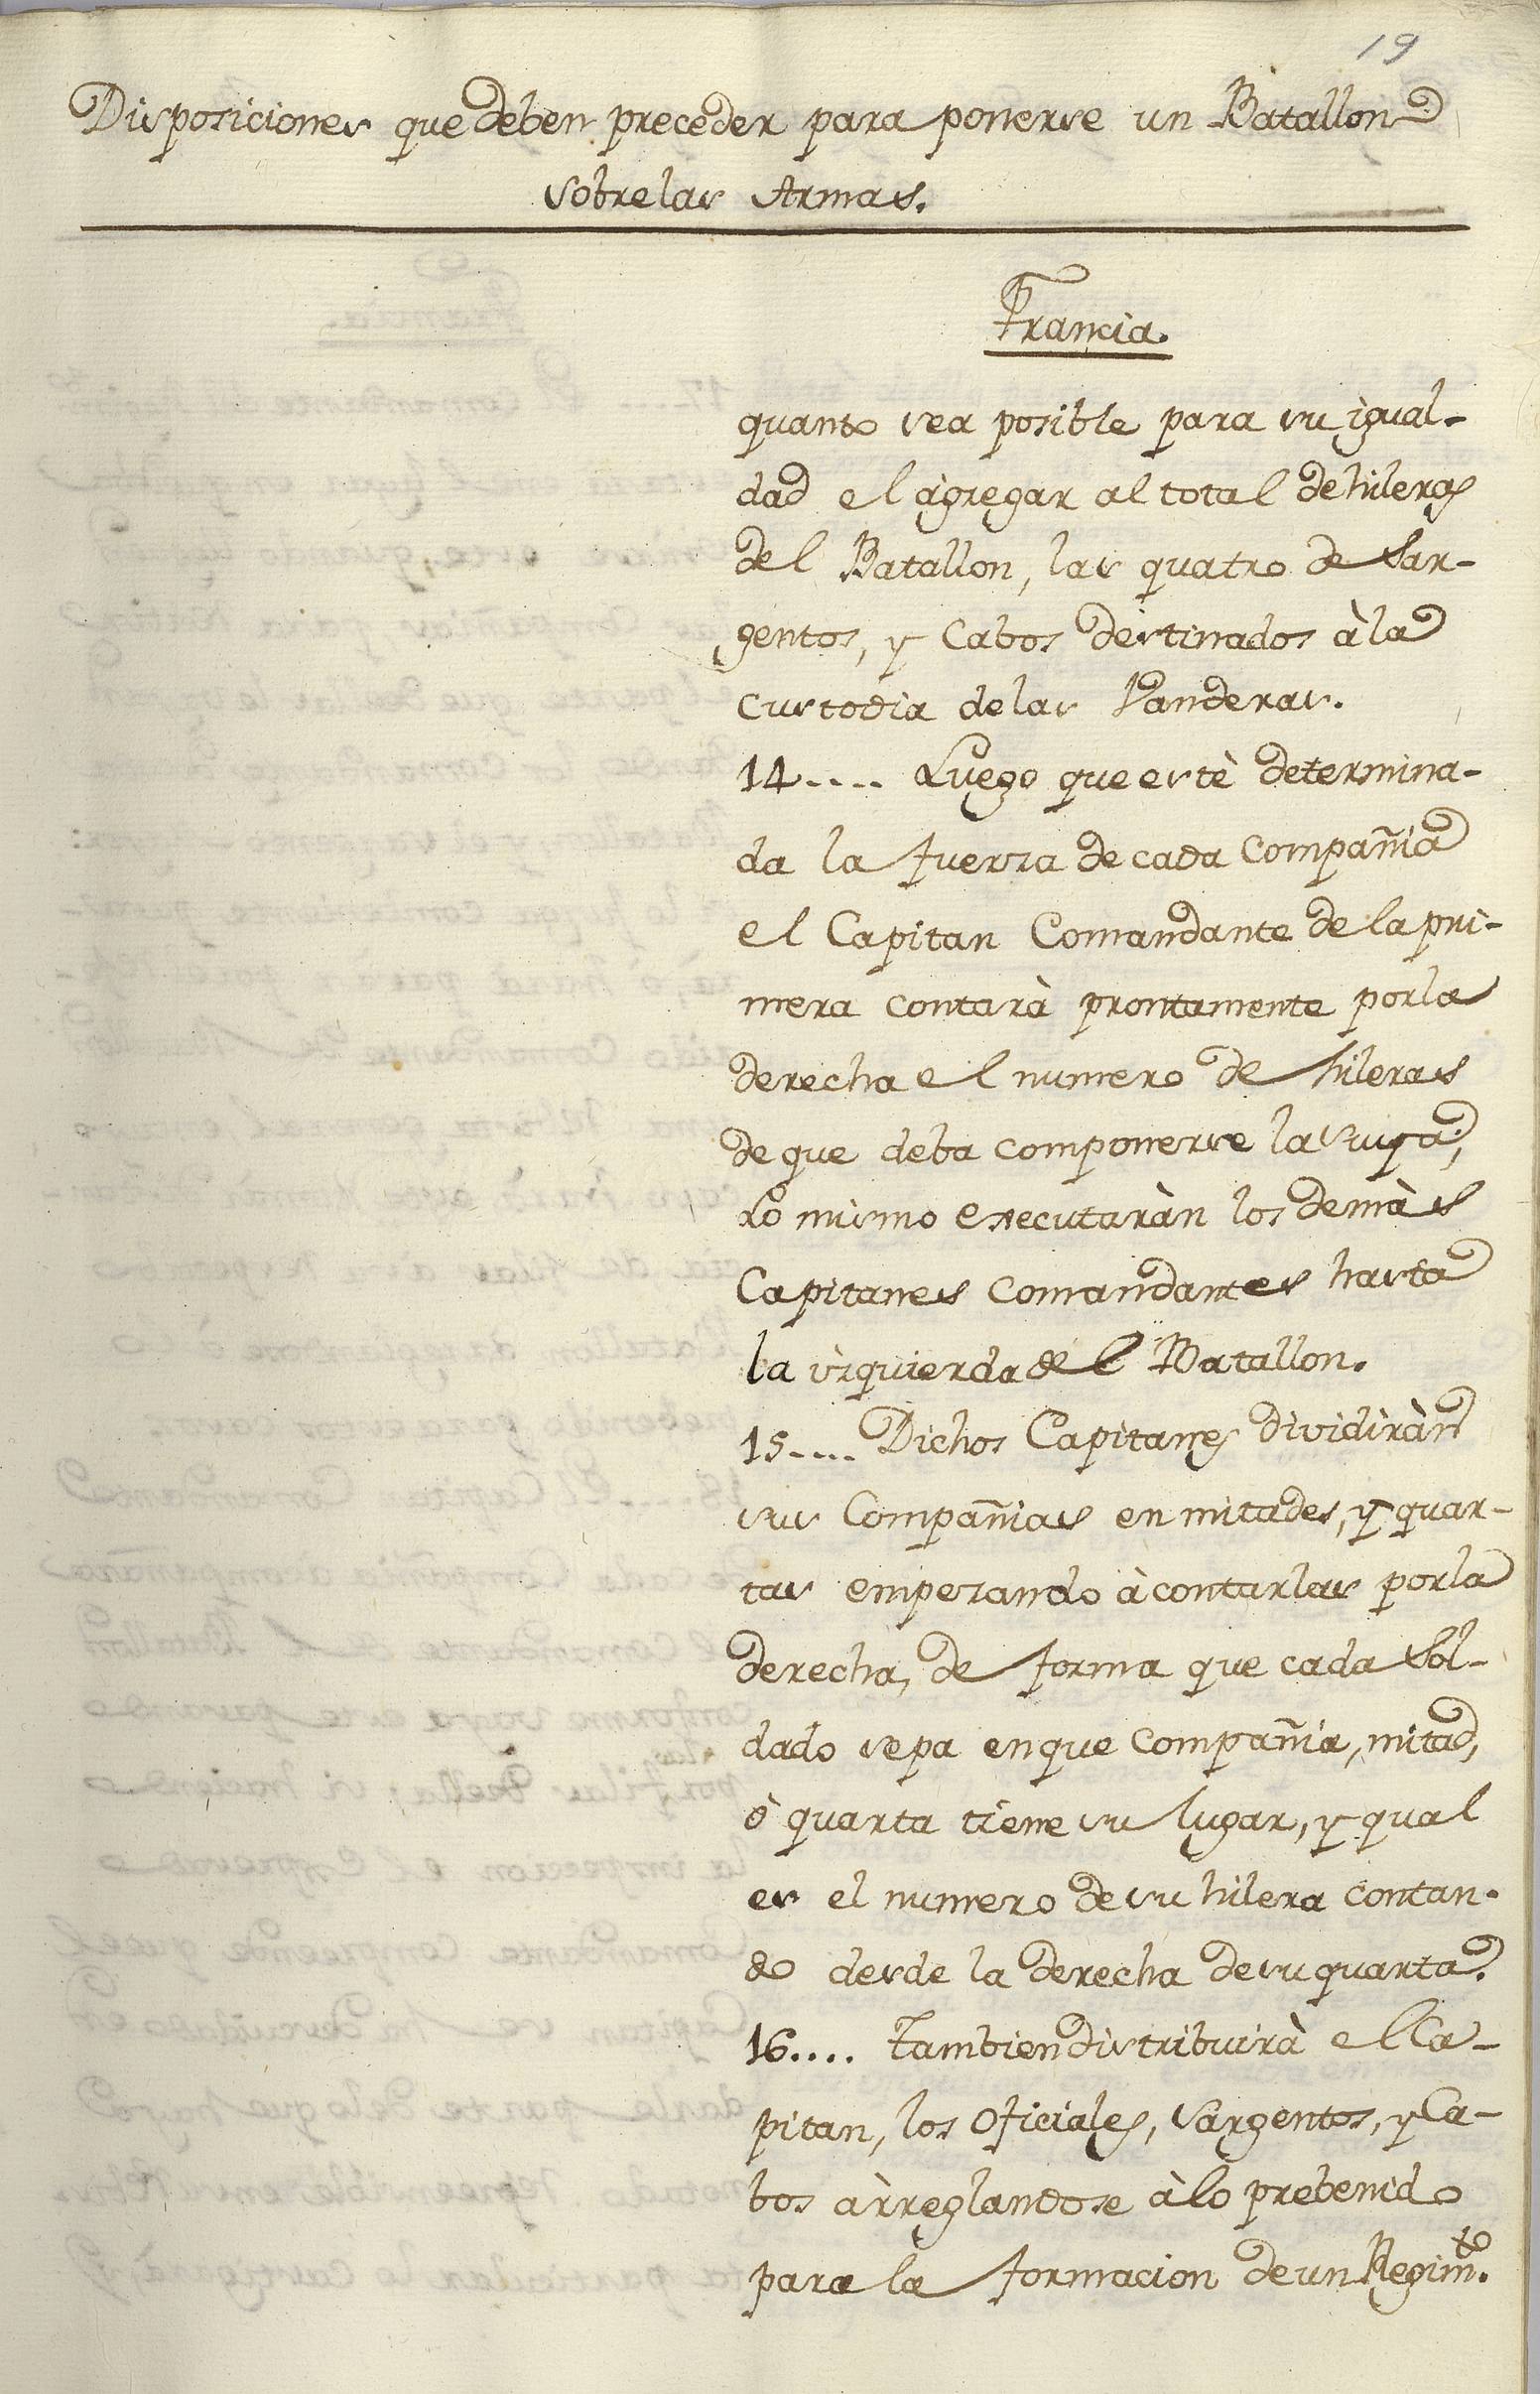 19
Disposiciones que deben preceder para ponerse un Batallon
sobre las Armas.
Francia.
quanto sea posible para su igual-
dad el agregar al total de hileras
del Batallon, las quatro de Sar-
gentos, y Cabos destinados à la
custodia de las Vanderas.
14.... Luego que estè determina-
da la fuerza de cada Compañia
el Capitan Comandante de la pri-
mera contarà prontamente por la
derecha el numero de hileras
de que deba componerse la suya;
Lo mismo executaràn los demàs
Capitanes Comandantes hasta
la izquierda del Batallon.
15.... Dichos Capitanes dividiràn
sus Compañias en mitades, y quar-
tas empezando à contarlas por la
derecha, de forma que cada Sol-
dado sepa en que Compañia, mitad,
ò quarta tiene su lugar, y qual
es el numero de su hilera contan-
do desde la derecha de su quarta.
16.... Tambien distribuirà el Ca-
pitan, los Oficiales, Sargentos, y Ca-
bos àrreglandose à lo prebenido
para la formacion de un Regim.to